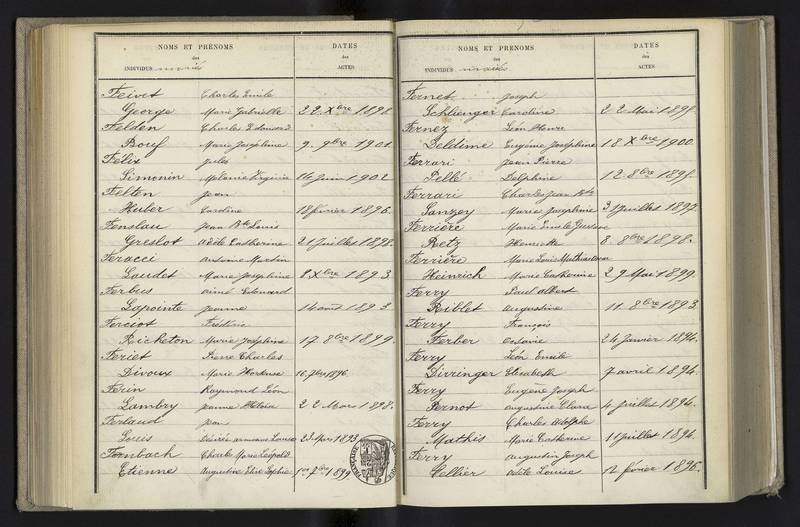 NOMS ET PRÉNOMS DATES
des des
INDIVIDUS mariés ACTES
Feivet Charles Emile
George Marie Gabrielle 22 Xbre 1898
Felden Charles Edouard
Bouf Marie Joséphine 9. 9bre 1901
Félix Jules
Simonin Mélanie Virginie 14 Juin 1902
Felten Jean
Huber Caroline 18 février 1896.
Fenslau Jean Bte Louis
Greslot Adèle Catherine 21 juillet 1898.
Feracci Antoine Martin
Laudet Marie Joséphine 8. Xbre 1893
Ferbus Aimé Edouard
Lapointe Jeanne 14 août 1893
Ferciot Frédéric
Richeton Marie Joséphine 17. 8bre 1899.
Feriet Pierre Charles
Divoux Marie Hortense 16. 7bre 1896
Ferin Raymond Léon
Lambry Jeanne Héloïse 22 Mars 1898.
Ferlaud Jean
Louis Désirée Louise 23 Mars 1893
Fornbach Charles Marie Léopold
Etienne Augustine Elise Sophie 1er 7bre 1899
NOMS ET PRÉNOMS DATES
des des
INDIVIDUS mariés ACTES
Fernet Joseph
Schluenger Caroline 22 Mai 1899.
Fernez Léon Henri
Deldime Eugénie Joséphine 18 Xbre 1900.
Ferrari Jean Pierre
Pillé Delphine 12. 8bre 1899.
Ferrari Charles Jean Bte
Sanzey Marie Joséphine 3 juillet 1897.
Ferrière Marie Emile Gustave
Retz Henriette 8. 8bre 1898.
Ferrière Marie Louis
Heinrich Marie Catherine 29 Mai 1899
Ferry Paul Albert
Riblet Augustine 11. 8bre 1893
Ferry François
Ferber Octavie 24 Janvier 1894.
Ferry Léon Emile
Dirringer Elisabeth 7 avril 1894
Ferry Eugène Joseph
Pernot Augustine Clara 4 juillet 1894.
Ferry Charles Adolphe
Mathis Marie Catherine 11 juillet 1894.
Ferry Augustin Joseph
Sellier Adèle Louise 12 février 1896.